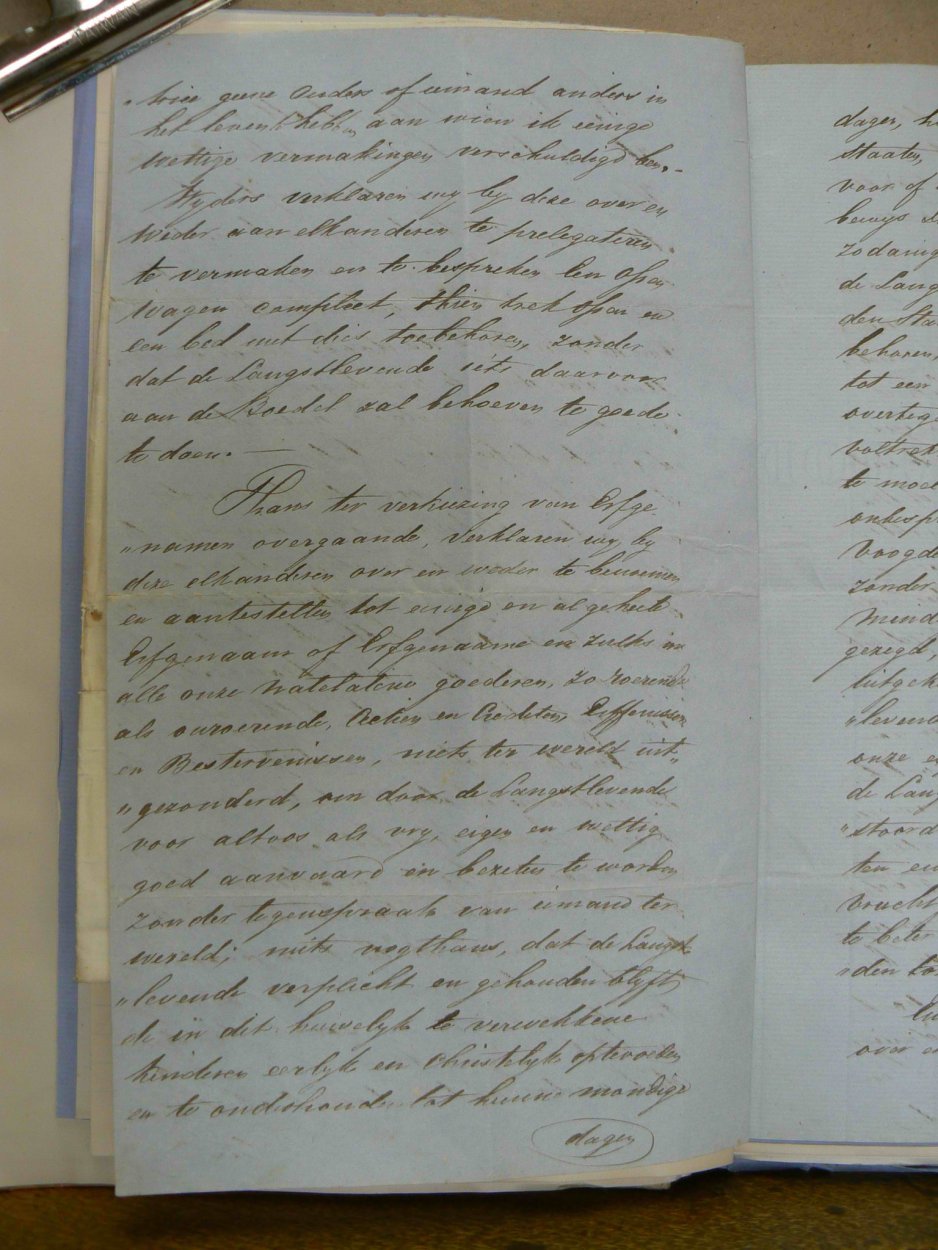 " wie geene Ouders of iemand anders in
het leven heb, aan wien ik eenige
wettige vermakingen verschuldigd ben,-
Wyders verklaren wy by deze over en
weder aan elkanderen te prelegateren
te vermaken en te bespreken Een Span
wagen compleet, thien trek Ossen en
een bed met dies toebehoren, zonder
dat de Langstlevende iets daarvoor
aan de Boedel zal behoeven te goede
te doen. —
Thans ter verkiezing van Erfge
"namen overgaande, verklaren wy by
deze elkanderen over en weder te benoemen
en aantestellen tot eenige en al geheele
Erfgenaam of Erfgenaame en zulks in
alle onze natelatene goederen, zo roerende
als onroerende, Actien en Crediten, Erffenissen
en Bestervenissen, niets ter wereld uit"
"gezonderd, om door de Langstlevende
voor altoos als vry, eigen en wettig
goed aanvaard en bezeten te worden
zonder tegenspraak van iemand ter
wereld; mits nogthans, dat de Langst
"levende verplicht en gehouden blyft
de in dit huwelyk te verwekkene
kinderen eerlyk en christelyk optevoeden
en te onderhouden tot hunne mondige
dagen
dagen,
staaten,
voor of
bewys
zodanig
de Lang
den
behoren,
tot een
overtege
voltrek
te moe
onbesp
Voogde
zonder
Mend
gezegd,
uitgek
"levend
onze e
de Lang
"stoord
ten en
vrucht
te beter
"den
over e